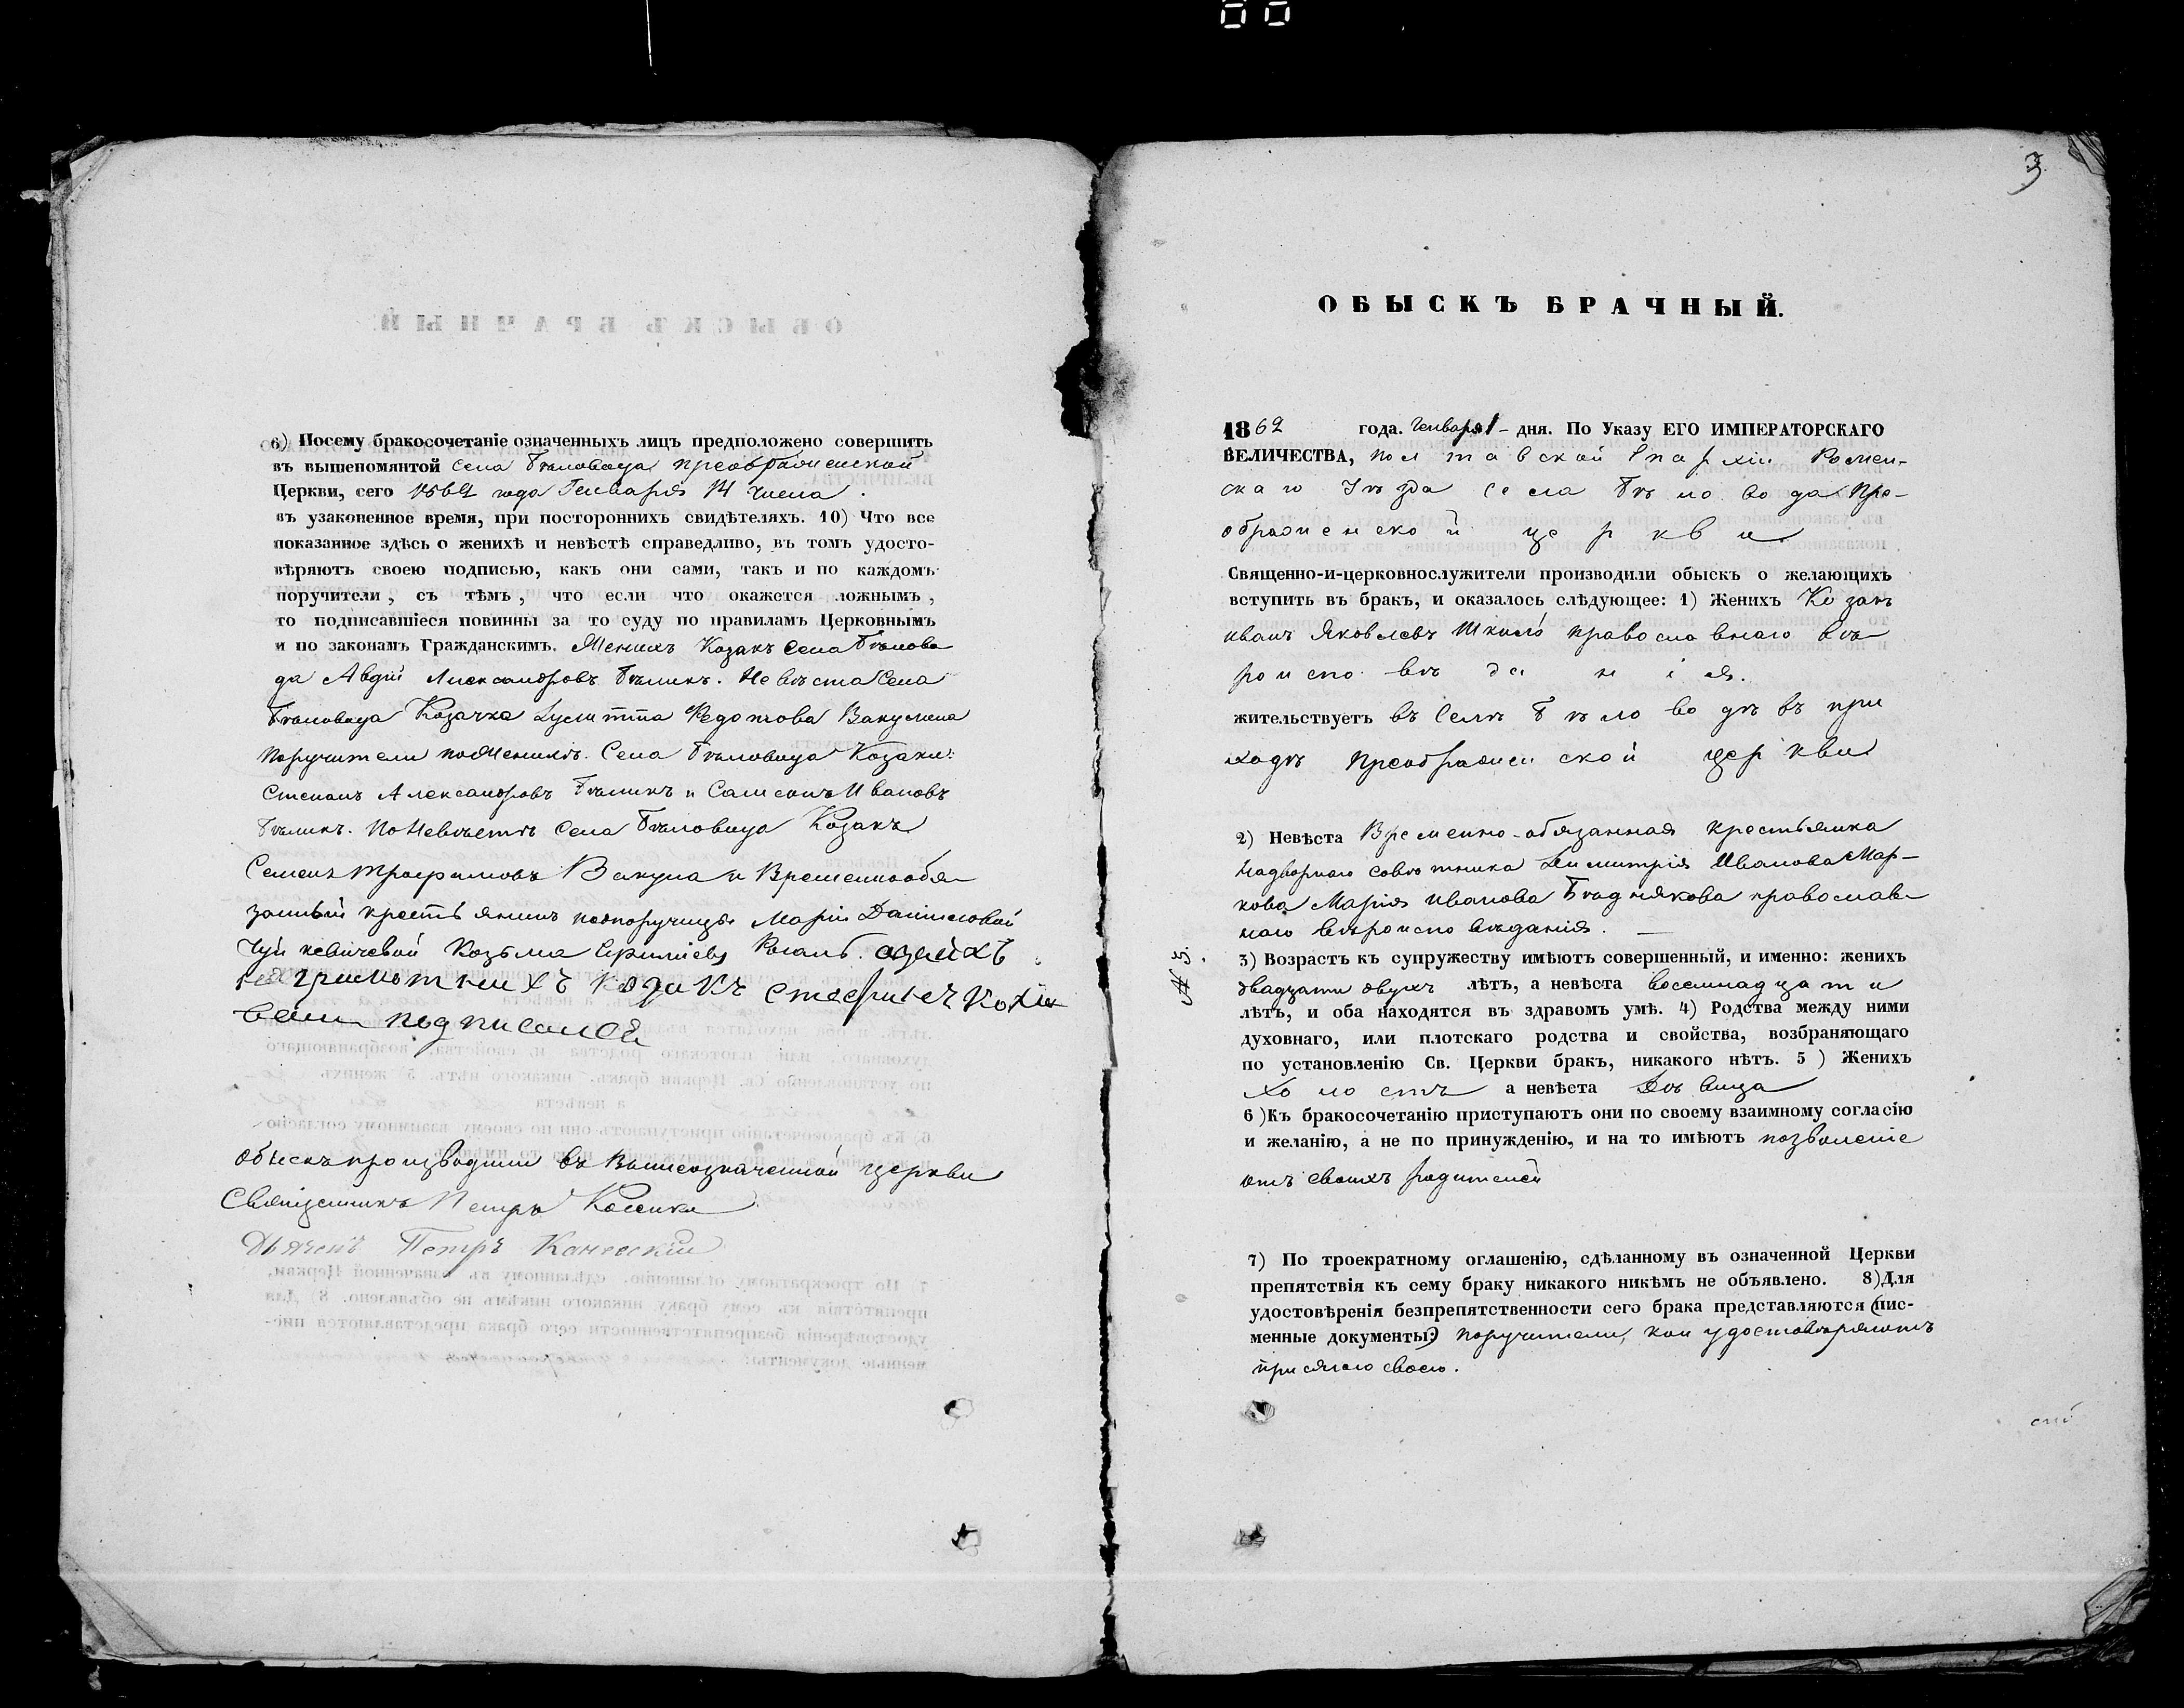 6) Посему бракосочетаніе означенныхъ лицъ предположено совершить
въ вышепомянтой села Бѣловода преображенской
Церкви, сего 1862 года Генваря 14 числа.
въ узаконенное время, при постороннихъ свидѣтеляхъ. 10) Что все
показанное здѣсь о женихѣ и невѣстѣ справедливо, въ томъ удосто-
вѣряютъ своею подписью, какъ они сами, такъ и по каждомъ
поручители, съ тѣмъ, что если что окажется ложнымъ,
то подписавшіеся повинны за то суду по правиламъ Церковнымъ
и по законамъ Гражданскимъ. Женихъ Козакъ села Бѣлово
да Авдій Александровъ Бѣликъ. Невѣста села
Бѣловода Козачка Федотова Вакулина
Поручители по Женихѣ. Села Бѣловода Козаки:
Степанъ Александровъ Бѣликъ и Самсонъ Ивановъ
Бѣликъ. По Невѣстѣ Села Бѣловода Козакъ
Семенъ Трофимовъ Вакула и Временнообя
занный крестьянинъ подпоручицы Маріи Даниловой
Козьма а за нихъ
неграмотныхъ козакъ
подписался
Обыскъ производили въ Вышеозначенной церкви
Священникъ Петръ
Дьяченъ Петръ Каневскій
3
ОБЫСКЪ БРАЧНЫЙ.
1862 года. Генваря 1 дня. По Указу ЕГО ИМПЕРАТОРСКАГО
ВЕЛИЧЕСТВА, Полтавской Епархіи Ромен-
скаго Уѣзда села Бѣловода Пре-
ображенской церкви
Священно-и-церковнослужители производили обыскъ о желающихъ
вступить въ бракъ, и оказалось слѣдующее: 1) Женихъ Козакъ
Иванъ Яковлевъ Шкыло православнаго вѣ
роисповѣданія.
жительствуетъ въ Селѣ Бѣловодѣ въ при
ходѣ Преображенской церкви
2) Невѣста Временно-обязанная крестьянка
Надворнаго совѣтника Димитрія Иванова Мар-
кова Марія Иванова Бѣднякова православ
наго вѣроисповѣданія.
№ 3.
3) Возрастъ къ супружеству имѣютъ совершенный, и именно: женихъ
двадцати двухъ лѣтъ, а невѣста восемнадцати
лѣтъ, и оба находятся въ здравомъ умѣ. 4) Родства между ними
духовнаго, или плотскаго родства и свойства, возбраняющаго
по установленію Св. Церкви бракъ, никакого нѣтъ. 5 ) Женихъ
Холостъ а невѣста Дѣвица
6 )Къ бракосочетанію приступаютъ они по своему взаимному согласію
и желанію, а не по принужденію, и на то имѣютъ позволеніе
отъ своихъ родителей
7) По троекратному оглашенію, сдѣланному въ означенной Церкви
препятствія къ сему браку никакого никѣмъ не объявлено. 8)Для
удостовѣренія безпрепятственности сего брака представляются (пис-
менные документы:) поручители, кои удостовѣряютъ
присягою своею.